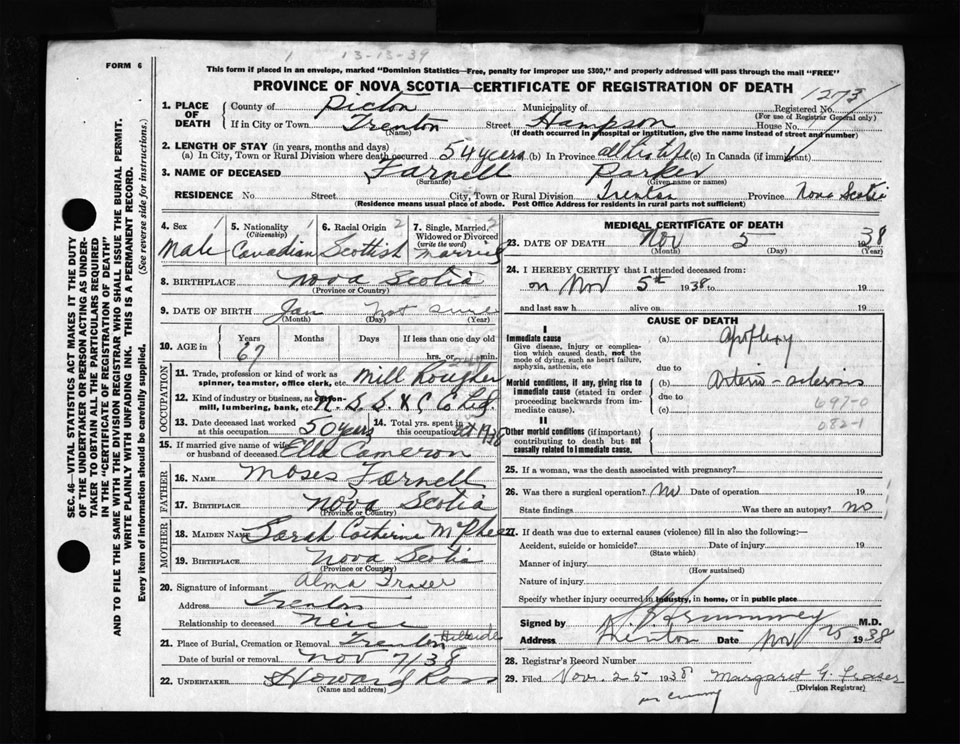 1 13-13-39
FORM 6
This form if placed in an envelope, marked "Dominion Statistics—Free, penalty for improper use $300," and properly addressed will pass through the mail "FREE"
PROVINCE OF NOVA SCOTIA—CERTIFICATE OF REGISTRATION OF DEATH
1273
1. PLACE OF DEATH
County of Picton Municipality of Registered No.
(For use of Registrar General only)
If in City or Town Trenton Street Hampson House No.
(Name) (If death occurred in hospital or institution, give the name instead of street and number)
2. LENGTH OF STAY (in years, months and days)
(a) In City, Town or Rural Division where death occurred 54 years (b) In Province all his life (c) In Canada (if immigrant)
3. NAME OF DECEASED Farnell Parker
(Surname) (Given name or names)
RESIDENCE No. Street City, Town or Rural Division Trenton Province Nova Scotia
(Residence means usual place of abode. Post Office Address for residents in rural parts not sufficient)
4. Sex 1 5. Nationality 1 6. Racial Origin 2 7. Single, Married, 2
(Citizenship) Widowed or Divorced
(write the word)
Male Canadian Scottish Married
8. BIRTHPLACE Nova Scotia
(Province or Country)
9. DATE OF BIRTH Jan not sure
(Month) (Day) (Year)
10. AGE in Years Months Days If less than one day old
67 hrs. or min.
OCCUPATION
11. Trade, profession or kind of work as spinner, teamster, office clerk, etc. Mill Rougher
12. Kind of industry or business, as cotton-mill, lumbering, bank, etc. N. S. S. & C Co Ltd.
13. Date deceased last worked at this occupation 50 years 14. Total yrs. spent in this occupation Oct 1938
15. If married give name of wife or husband of deceased Ella Cameron
FATHER
16. NAME Moses Farnell
17. BIRTHPLACE Nova Scotia
(Province or Country)
MOTHER
18. MAIDEN NAME Sarah Catherine McPhee
19. BIRTHPLACE Nova Scotia
(Province or Country)
20. Signature of informant Alma Fraser
Address Trenton
Relationship to deceased Neice
21. Place of Burial, Cremation or Removal Trenton Hillside
Date of burial or removal Nov 7/38
22. UNDERTAKER Howard Ross
(Name and address)
MEDICAL CERTIFICATE OF DEATH
23. DATE OF DEATH Nov 5 1938
(Month) (Day) (Year)
24. I HEREBY CERTIFY that I attended deceased from:
on Nov 5th 1938 to 19
and last saw h alive on 19
CAUSE OF DEATH
I
Immediate cause (a) apoplexy
Give disease, injury or complication which caused death, not the mode of dying, such as heart failure, asphyxia, asthenia, etc
due to
Morbid conditions, if any, giving rise to immediate cause (stated in order proceeding backwards from immediate cause).
(b) Arterio-sclerosis
due to 697-0
(c) 082-1
II
Other morbid conditions (if important) contributing to death but not causally related to immediate cause.
25. If a woman, was the death associated with pregnancy?
26. Was there a surgical operation? No Date of operation 19
State findings Was there an autopsy? no
27. If death was due to external causes (violence) fill in also the following:—
Accident, suicide or homicide? Date of injury 19
(State which)
Manner of injury
(How sustained)
Nature of injury
Specify whether injury occurred in industry, in home, or in public place
Signed by M.D.
Address Trenton Date Nov 25 1938
28. Registrar's Record Number
29. Filed Nov. 25 1938 Margaret G. Fraser
(Division Registrar)
SEC. 46—VITAL STATISTICS ACT MAKES IT THE DUTY
OF THE UNDERTAKER OR PERSON ACTING AS UNDER-
TAKER TO OBTAIN ALL THE PARTICULARS REQUIRED
IN THE "CERTIFICATE OF REGISTRATION OF DEATH"
AND TO FILE THE SAME WITH THE DIVISION REGISTRAR WHO SHALL ISSUE THE BURIAL PERMIT.
WRITE PLAINLY WITH UNFADING INK. THIS IS A PERMANENT RECORD.
Every item of information should be carefully supplied. (See reverse side for instructions.)